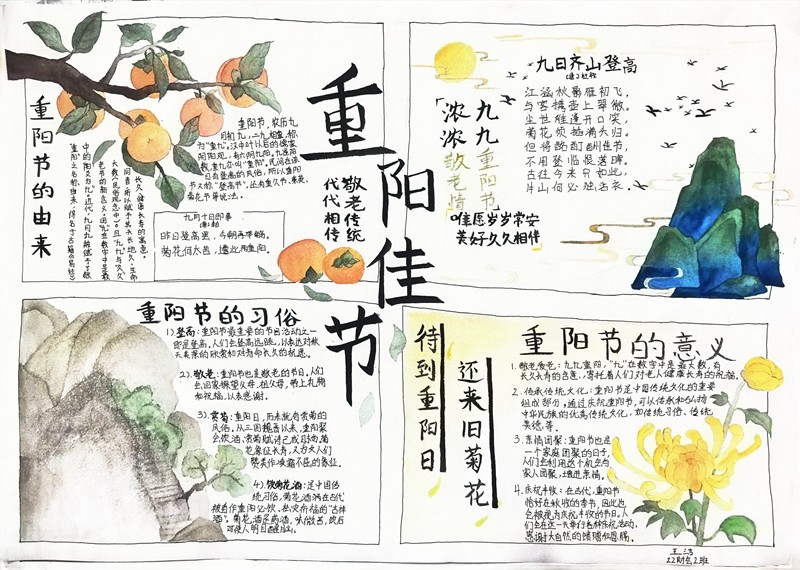 重阳佳节
敬老传统
代代相传
重阳节的由来
重阳节，农历九
月初九，二九相重，称
为"重九"，汉中叶以后的儒家
阴阳观，有六阴九阳。九是阳
节又称"登高节"。还有重九节、茱萸、
菊花节等说法。
九月十日即事
(唐)李白
昨日登高罢，今朝再举觞。
菊花何太苦，遭此两重阳。
九日齐山登高
(唐)杜牧
江涵秋影雁初飞，
与客携壶上翠微。
尘世难逢开口笑，
菊花须插满头归。
但将酩酊酬佳节，
不用登临恨落晖。
古往今来只如此，
牛山何必独沾衣。
九九重阳节
「浓浓敬老情
唯愿岁岁常安
美好久久相伴
重阳节的习俗
1）登高：重阳节最重要的节日活动之一
即是登高，人们会登高远眺，以表达对秋
天美景的欣赏和对寿命长久的祝愿。
2）.敬老：重阳节也是敬老的节日，人们
会回家探望父母、祖父母，带上礼物
和祝福，以表感谢。
3）.赏菊：重阳日，历来就有赏菊的
风俗，从三国魏晋以来，重阳聚
会饮酒、赏菊赋诗已成时尚。菊
花象征长寿，又为文人们
赞美作凌霜不屈的象征。
4）.饮菊花酒：是中国传
统习俗，菊花酒在古代
被看作重阳必饮、祛灾祈福的"吉祥
酒"。菊花酒是药酒，味微苦，饮后
可使人明目醒脑。
待到重阳日
还来旧菊花
重阳节的意义
1.敬老爱老：九九重阳，"九"在数字中是最大数，有
长久长寿的含意，寄托着人们对老人健康长寿的祝福。
2.传承传统文化：重阳节是中国传统文化的重要
组成部分。通过庆祝重阳节，可以传承和弘扬
中华民族的优秀传统文化，如传统习俗、传统
美德等。
3.亲情团聚：重阳节也是
一个家庭团聚的日子，
人们会利用这个机会与
家人团聚，增进亲情。
4.庆祝丰收：在古代，重阳节
恰好在秋收的季节，因此也
会被视为庆祝丰收的节日。人
们会在这一天举行各种庆祝活动，
感谢大自然的馈赠和恩赐。
22财会2班